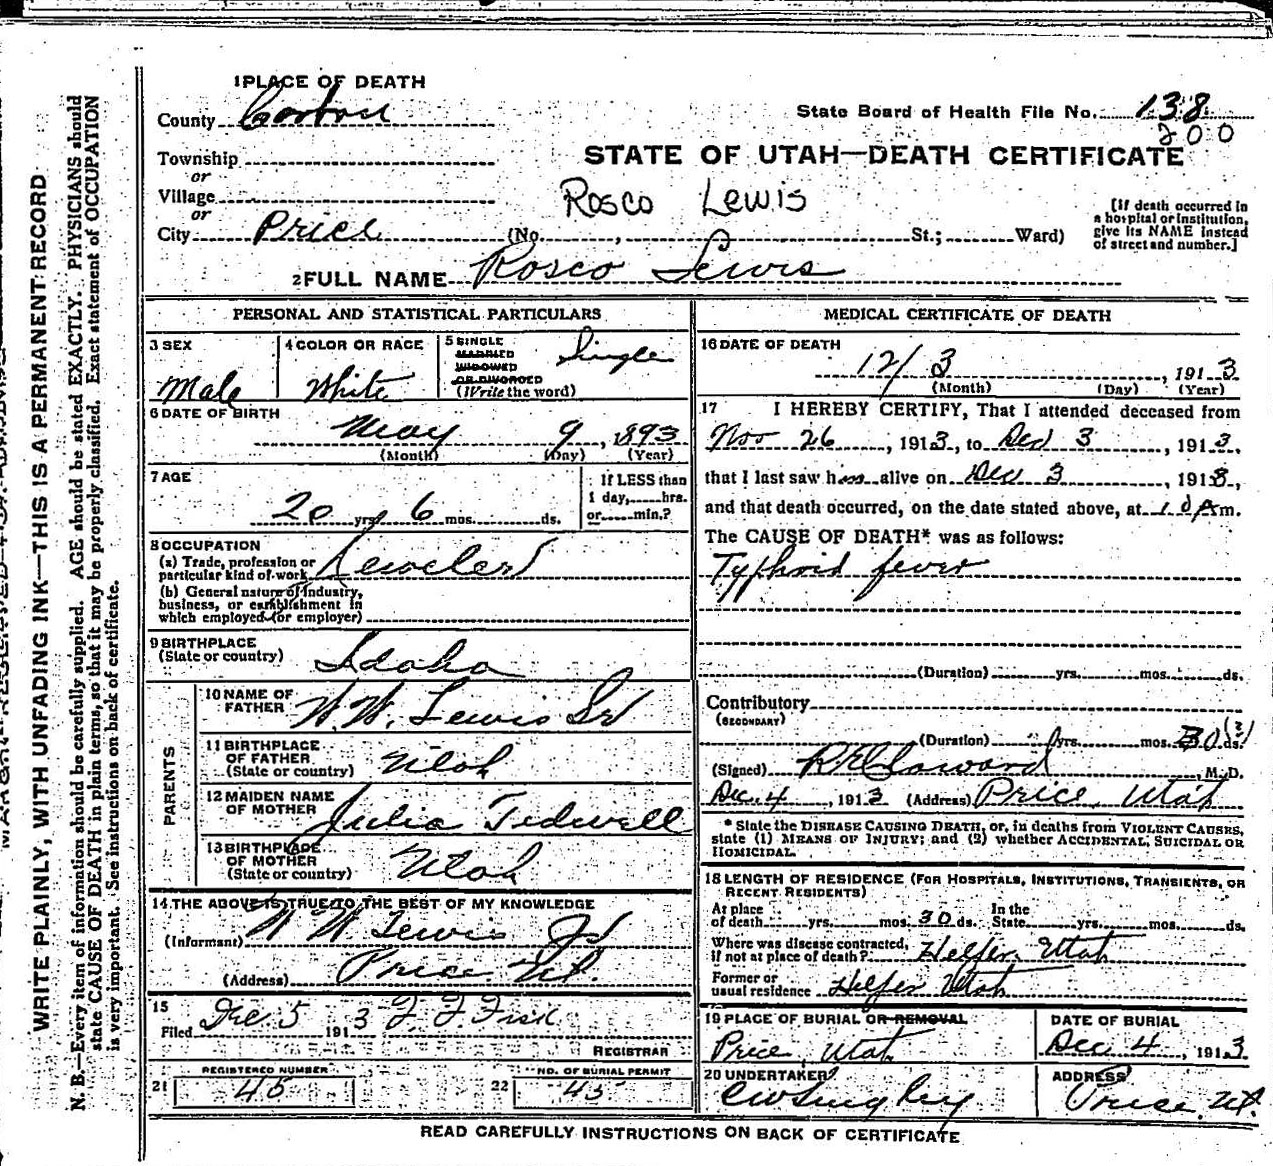 1 PLACE OF DEATH
County Carbon
State Board of Health File No. 138
200
Township
or
STATE OF UTAH—DEATH CERTIFICATE
Village
or
Rosco Lewis
[If death occurred in
a hospital or institution,
give its NAME instead
of street and number.]
City Price (No. , St.; Ward)
2 FULL NAME Rosco Lewis
PERSONAL AND STATISTICAL PARTICULARS
3 SEX
Male
4 COLOR OR RACE
White
5 SINGLE
MARRIED
WIDOWED
OR DIVORCED
(Write the word)
Single
6 DATE OF BIRTH
May 9, 1893
(Month) (Day) (Year)
7 AGE
20 yrs. 6 mos. ds.
If LESS than
1 day, hrs.
or min.?
8 OCCUPATION
(a) Trade, profession or
particular kind of work Jeweler
(b) General nature of industry,
business, or establishment in
which employed (or employer)
9 BIRTHPLACE
(State or country) Idaho
PARENTS
10 NAME OF
FATHER W. W. Lewis Sr
11 BIRTHPLACE
OF FATHER
(State or country) Utah
12 MAIDEN NAME
OF MOTHER Julia Tidwell
13 BIRTHPLACE
OF MOTHER
(State or country) Utah
14 THE ABOVE IS TRUE TO THE BEST OF MY KNOWLEDGE
(Informant) W W Lewis Jr
(Address) Price Ut.
15
Filed Dec 5 1913 F. F. Fisk
REGISTRAR
REGISTERED NUMBER
21 45
NO. OF BURIAL PERMIT
22 45
MEDICAL CERTIFICATE OF DEATH
16 DATE OF DEATH
12/3, 1913
(Month) (Day) (Year)
17 I HEREBY CERTIFY, That I attended deceased from
Nov 26, 1913, to Dec 3, 1913,
that I last saw him alive on Dec 3, 1913,
and that death occurred, on the date stated above, at m.
The CAUSE OF DEATH* was as follows:
Typhoid fever
(Duration) yrs. mos. ds.
Contributory
(SECONDARY)
(Duration) yrs. mos. 30 ds. (?)
(Signed) , M.D.
Dec. 4, 1913 (Address) Price, Utah
* State the DISEASE CAUSING DEATH, or, in deaths from VIOLENT CAUSES,
state (1) MEANS OF INJURY; and (2) whether ACCIDENTAL, SUICIDAL OR
HOMICIDAL.
18 LENGTH OF RESIDENCE (FOR HOSPITALS, INSTITUTIONS, TRANSIENTS, OR
RECENT RESIDENTS)
At place
of death yrs. mos. 30 ds.
In the
State yrs. mos. ds.
Where was disease contracted,
if not at place of death? Helper, Utah
Former or
usual residence Helper Utah
19 PLACE OF BURIAL OR REMOVAL
Price, Utah
DATE OF BURIAL
Dec 4, 1913
20 UNDERTAKER
ADDRESS
Price, Ut.
READ CAREFULLY INSTRUCTIONS ON BACK OF CERTIFICATE
WRITE PLAINLY, WITH UNFADING INK—THIS IS A PERMANENT RECORD
N. B.—Every item of information should be carefully supplied. AGE should be stated EXACTLY. PHYSICIANS should
state CAUSE OF DEATH in plain terms, so that it may be properly classified. Exact statement of OCCUPATION
is very important. See instructions on back of certificate.